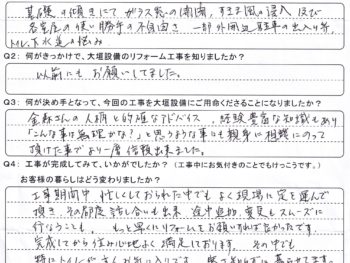 基礎の傾きにて ガラス窓への開閉、すき間風の侵入 及び
各室の使い勝手の不自由さ 一部外回り駐車の出入り等、
トイレ、下水道の悩み
Q2: 何がきっかけで、大垣設備のリフォーム工事を知りましたか?
以前にもお願いしてました。
Q3: 何が決め手となって、今回の工事を大垣設備にご用命くださることになりましたか?
さんの人柄と的確なアドバイス、経験豊富な知識もあり
「こんな事は無理かな?」と思うような事にも親身に相談にのって
頂けた事でより一層信頼出来ました。
Q4: 工事が完成してみて、いかがでしたか?(工事中にお気付きのことでもけっこうです。)
お客様の暮らしはどう変わりましたか?
工事期間中 忙しくしておられた中でも よく現場に足を運んで
頂き、その都度話し合いも出来 途中追加、変更もスムーズに
行なうことも、もっと早くにリフォームをお願いすれば良かったです。
完成してから住み心地よく満足しております。その中でも
特にトイレが